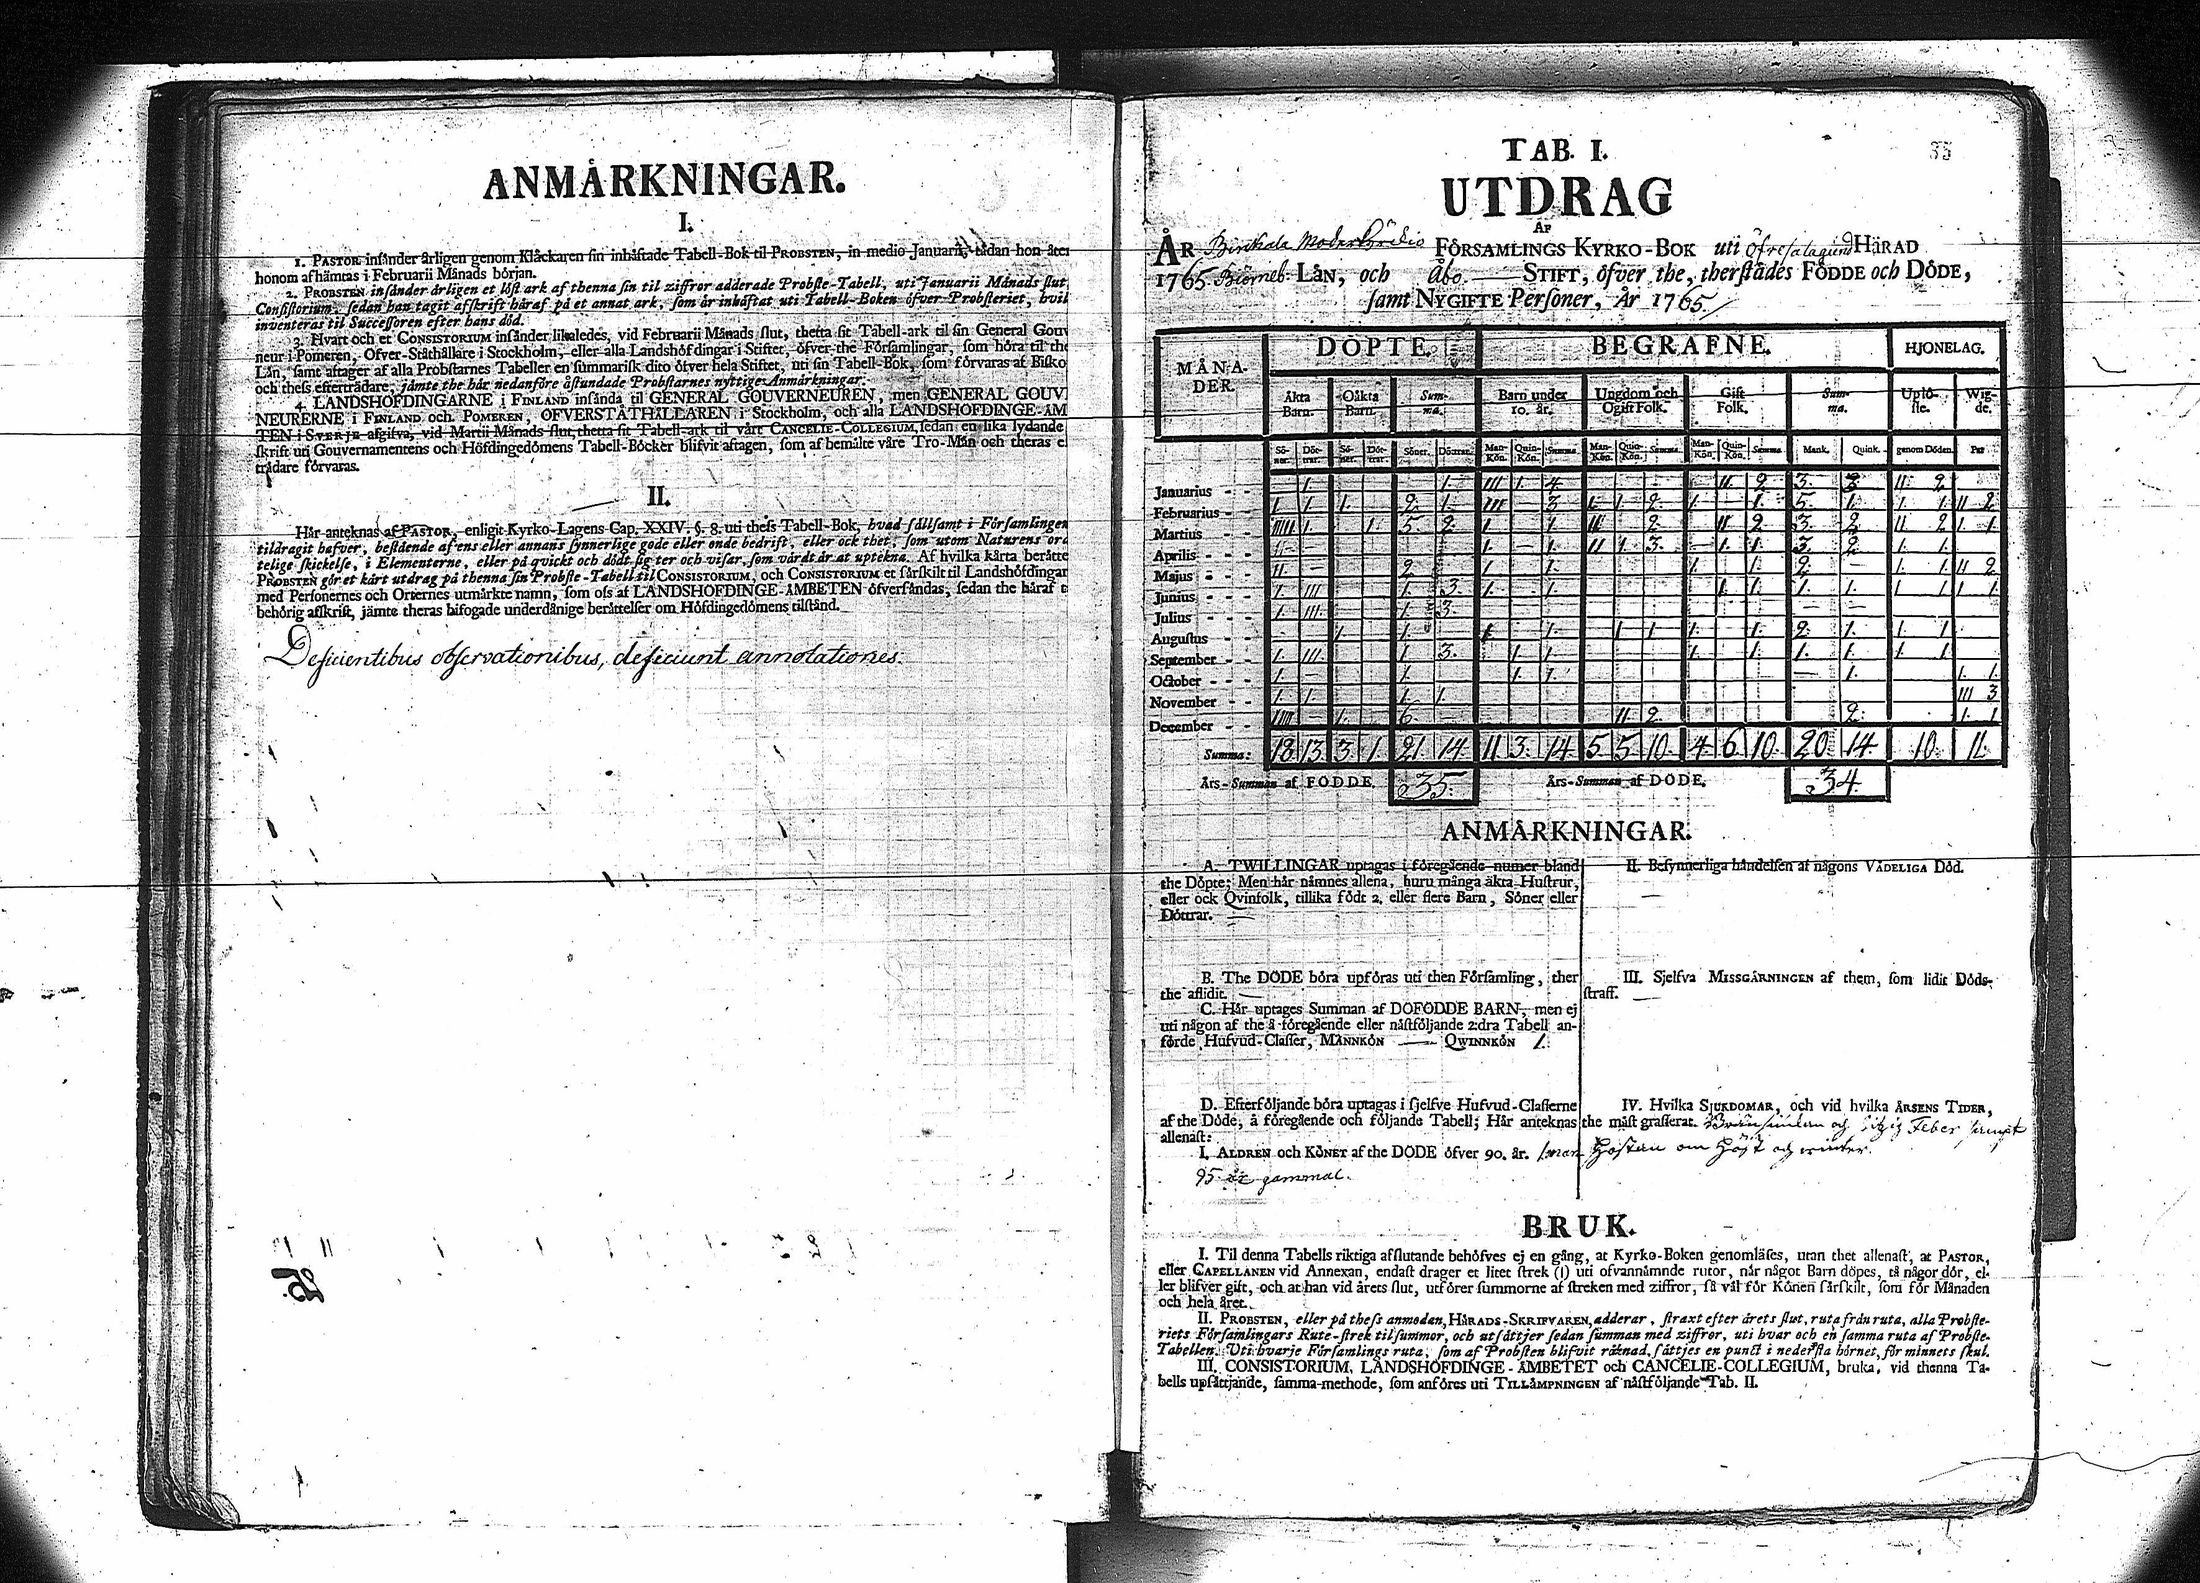 ANMÄRKNINGAR.
I.
1. PASTOR insänder årligen genom Klåckaren sin inhäftade Tabell-Bok til PROBSTEN, in medio Januarii, sådan hon åter
honom afhämtas i Februarii Månads början.
2. PROBSTEN insänder årligen et löst ark af thenna sin til ziffror adderade Probste-Tabell, uti Januarii Månads slut
Consistorium, sedan han tagit afskrift häraf på et annat ark, som är inhäftat uti Tabell-Boken öfver Probsteriet, hvil
inventeras til Successoren efter hans död.
3. Hvart och et CONSISTORIUM insänder likaledes, vid Februarii Månads slut, thetta sit Tabell-ark til sin General Gouv
neur i Pomeren, Öfver-Ståthållare i Stockholm, eller alla Landshöfdingar i Stiftet, öfver the Församlingar, som höra til the
Län, samt aftager af alla Probstarnes Tabeller en summarisk dito öfver hela Stiftet, uti sin Tabell-Bok, som förvaras af Bisko
och thess efterträdare, jämte the här nedanföre åstundade Probstarnes nyttige Anmärkningar.
4. LANDSHÖFDINGARNE i FINLAND insända til GENERAL GOUVERNEUREN, men GENERAL GOUV
NEURERNE i FINLAND och POMEREN, ÖFVERSTÅTHÅLLAREN i Stockholm, och alla LANDSHÖFDINGE-ÄM
TEN i SVERJE afgifva, vid Martii Månads slut, thetta sit Tabell-ark til vårt CANCELIE-COLLEGIUM, sedan en lika lydande
skrift uti Gouvernamentens och Höfdingedömens Tabell-Böcker blifvit aftagen, som af bemälte våre Tro-Män och theras e
trädare förvaras.
II.
Här anteknas af PASTOR, enligit Kyrko-Lagens Cap. XXIV. §. 8. uti thess Tabell-Bok, hvad sällsamt i Församlingen
tildragit hafver, bestående af ens eller annans synnerlige gode eller onde bedrift, eller ock thet, som utom Naturens ord
telige skickelse, i Elementerne, eller på qvickt och dödt sig ter och visar, som värdt är at uptekna. Af hvilka kårta berätte
PROBSTEN gör et kårt utdrag på thenna sin Probste-Tabell til CONSISTORIUM, och CONSISTORIUM et särskilt til Landshöfdingar
med Personernes och Orternes utmärkte namn, som oss af LANDSHÖFDINGE-ÄMBETEN öfversändas, sedan the häraf t
behörig afskrift, jämte theras bifogade underdånige berättelser om Höfdingedömens tilstånd.
Deficientibus observationibus, deficiunt annotationes.
TAB. I.
35
UTDRAG
AF
ÅR Birckala Moderkyrckio FÖRSAMLINGS KYRKO-BOK uti Öfresatagund HÄRAD
1765. Biörneb. LÄN, och Åbo STIFT, öfver the, therstädes FÖDDE och DÖDE,
samt NYGIFTE Personer, År 1765.
MÅNADER. DÖPTE. BEGRAFNE. HJONELAG.
Äkta Barn. Oäkta Barn. Summa. Barn under 10. år. Ungdom och Ogift Folk. Gift Folk. Summa. Uplöste. Wigde.
Söner. Döttrar. Söner. Döttrar. Söner. Döttrar. Man-Kön. Quin-Kön. Summa Man-Kön. Quin-Kön. Summa Man-Kön. Quin-Kön. Summa Mank. Quink. genom Döden. Par
Januarius - - 1. 1. III 1. 4. II 2 3. 3. II 2.
Februarius - - 1. 1. 1. 2. 1. III 3. 1. 1. 2. 1. 1. 5. 1. 1. 1. II 2
Martius - - IIIII 1. 1. 5. 2. 1. 1. II 2. II 2 3. 2. II 2 1. 1.
Aprilis - - 1. 1. II 1. 3. 1. 1. 3. 2. 1. 1.
Majus - - II 2. 1. 1. 1. 1. 2. 1. 1. II 2
Junius - - 1. III 1. 3. 1. 1. 1. 1. 1. 1. 1. 1. 1. 1.
Julius - - 1. III. 1. 3.
Augustus - - 1. 1. 1. 1. 1. 1. 1. 1. 2. 1. 1. 1.
September - - 1. III. 1. 3. 1. 1. 1. 1. 1. 1. 1. 1.
October - - 1. 1. 1. 1. 1. 1. 1.
November - - 1. 1. 1. 1. III 3
December - - 1. 6. II 2. 2. 1. 1
Summa: 18. 13. 3. 1. 21. 14. 11. 3. 14. 5. 5. 10. 4. 6. 10. 20. 14. 10. 11.
Års-Summan af FÖDDE. 35. Års-Summan af DÖDE. 34.
ANMÄRKNINGAR.
A. TWILLINGAR uptagas i föregående numer bland
the Döpte; Men här nämnes allena, huru många äkta Hustrur,
eller ock Qvinfolk, tillika födt 2. eller flere Barn, Söner eller
Döttrar.
B. The DÖDE böra upföras uti then Församling, ther
the aflidit.
C. Här uptages Summan af DÖFÖDDE BARN, men ej
uti någon af the å föregående eller nästföljande 2:dra Tabell an-
förde Hufvud-Classer, MANNKÖN — QWINNKÖN 1.
D. Efterföljande böra uptagas i sjelfve Hufvud-Classerne
af the Döde, å föregående och följande Tabell; Här anteknas
allenast:
I. ÅLDREN och KÖNET af the DÖDE öfver 90. år. 1 man
95 år gammal.
II. Besynnerliga händelsen af någons VÅDELIGA Död.
III. Sjelfva MISSGÄRNINGEN af them, som lidit Döds-
straff.
IV. Hvilka SJUKDOMAR, och vid hvilka ÅRSENS TIDER,
the mäst grasserat. Brånsiukan og hitzig Feber samt
Hostan om Höst og winter.
BRUK.
I. Til denna Tabells riktiga afslutande behöfves ej en gång, at Kyrko-Boken genomläses, utan thet allenast, at PASTOR,
eller CAPELLANEN vid Annexan, endast drager et litet strek (I) uti ofvannämnde rutor, när något Barn döpes, tå någor dör, el-
ler blifver gift, och at han vid årets slut, utförer summorne af streken med ziffror, så väl för Könen särskilt, som för Månaden
och hela året.
II. PROBSTEN, eller på thess anmodan, HÄRADS-SKRIFVAREN, adderar, straxt efter årets slut, ruta från ruta, alla Probste-
riets Församlingars Rute-strek til summor, och utsättjer sedan summan med ziffror, uti hvar och en samma ruta af Probste-
Tabellen. Uti hvarje Församlings ruta, som af Probsten blifvit räknad, sättjes en punct i nedersta hörnet, för minnets skul.
III. CONSISTORIUM, LANDSHÖFDINGE-ÄMBETET och CANCELIE-COLLEGIUM, bruka, vid thenna Ta-
bells upsättjande, samma methode, som anföres uti TILLÄMPNINGEN af nästföljande Tab. II.